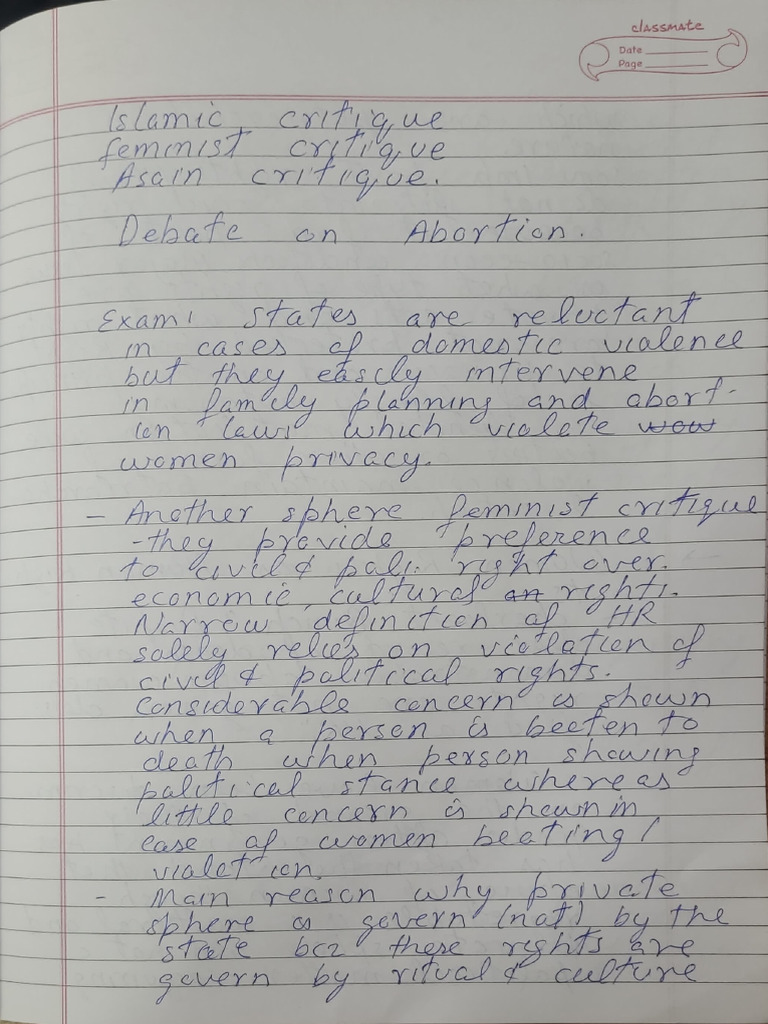 classmate
Date
Page
Islamic critique
feminist critique
Asain critique.
Debate on Abortion.
Exam: States are reluctant
in cases of domestic violence
but they easely intervene
in family planning and abort-
ion laws which violate
women privacy.
- Another sphere feminist critique
- they provide preference
to civil & poli. right over.
economic, cultural rights.
Narrow definition of HR
solely relies on violation of
civil & political rights.
Considerable concern is shown
when a person is beeten to
death when person showing
political stance where as
little concern is shown in
case of women beating /
violation.
- Main reason why private
sphere is govern (not) by the
state bcz these rights are
govern by ritual & culture